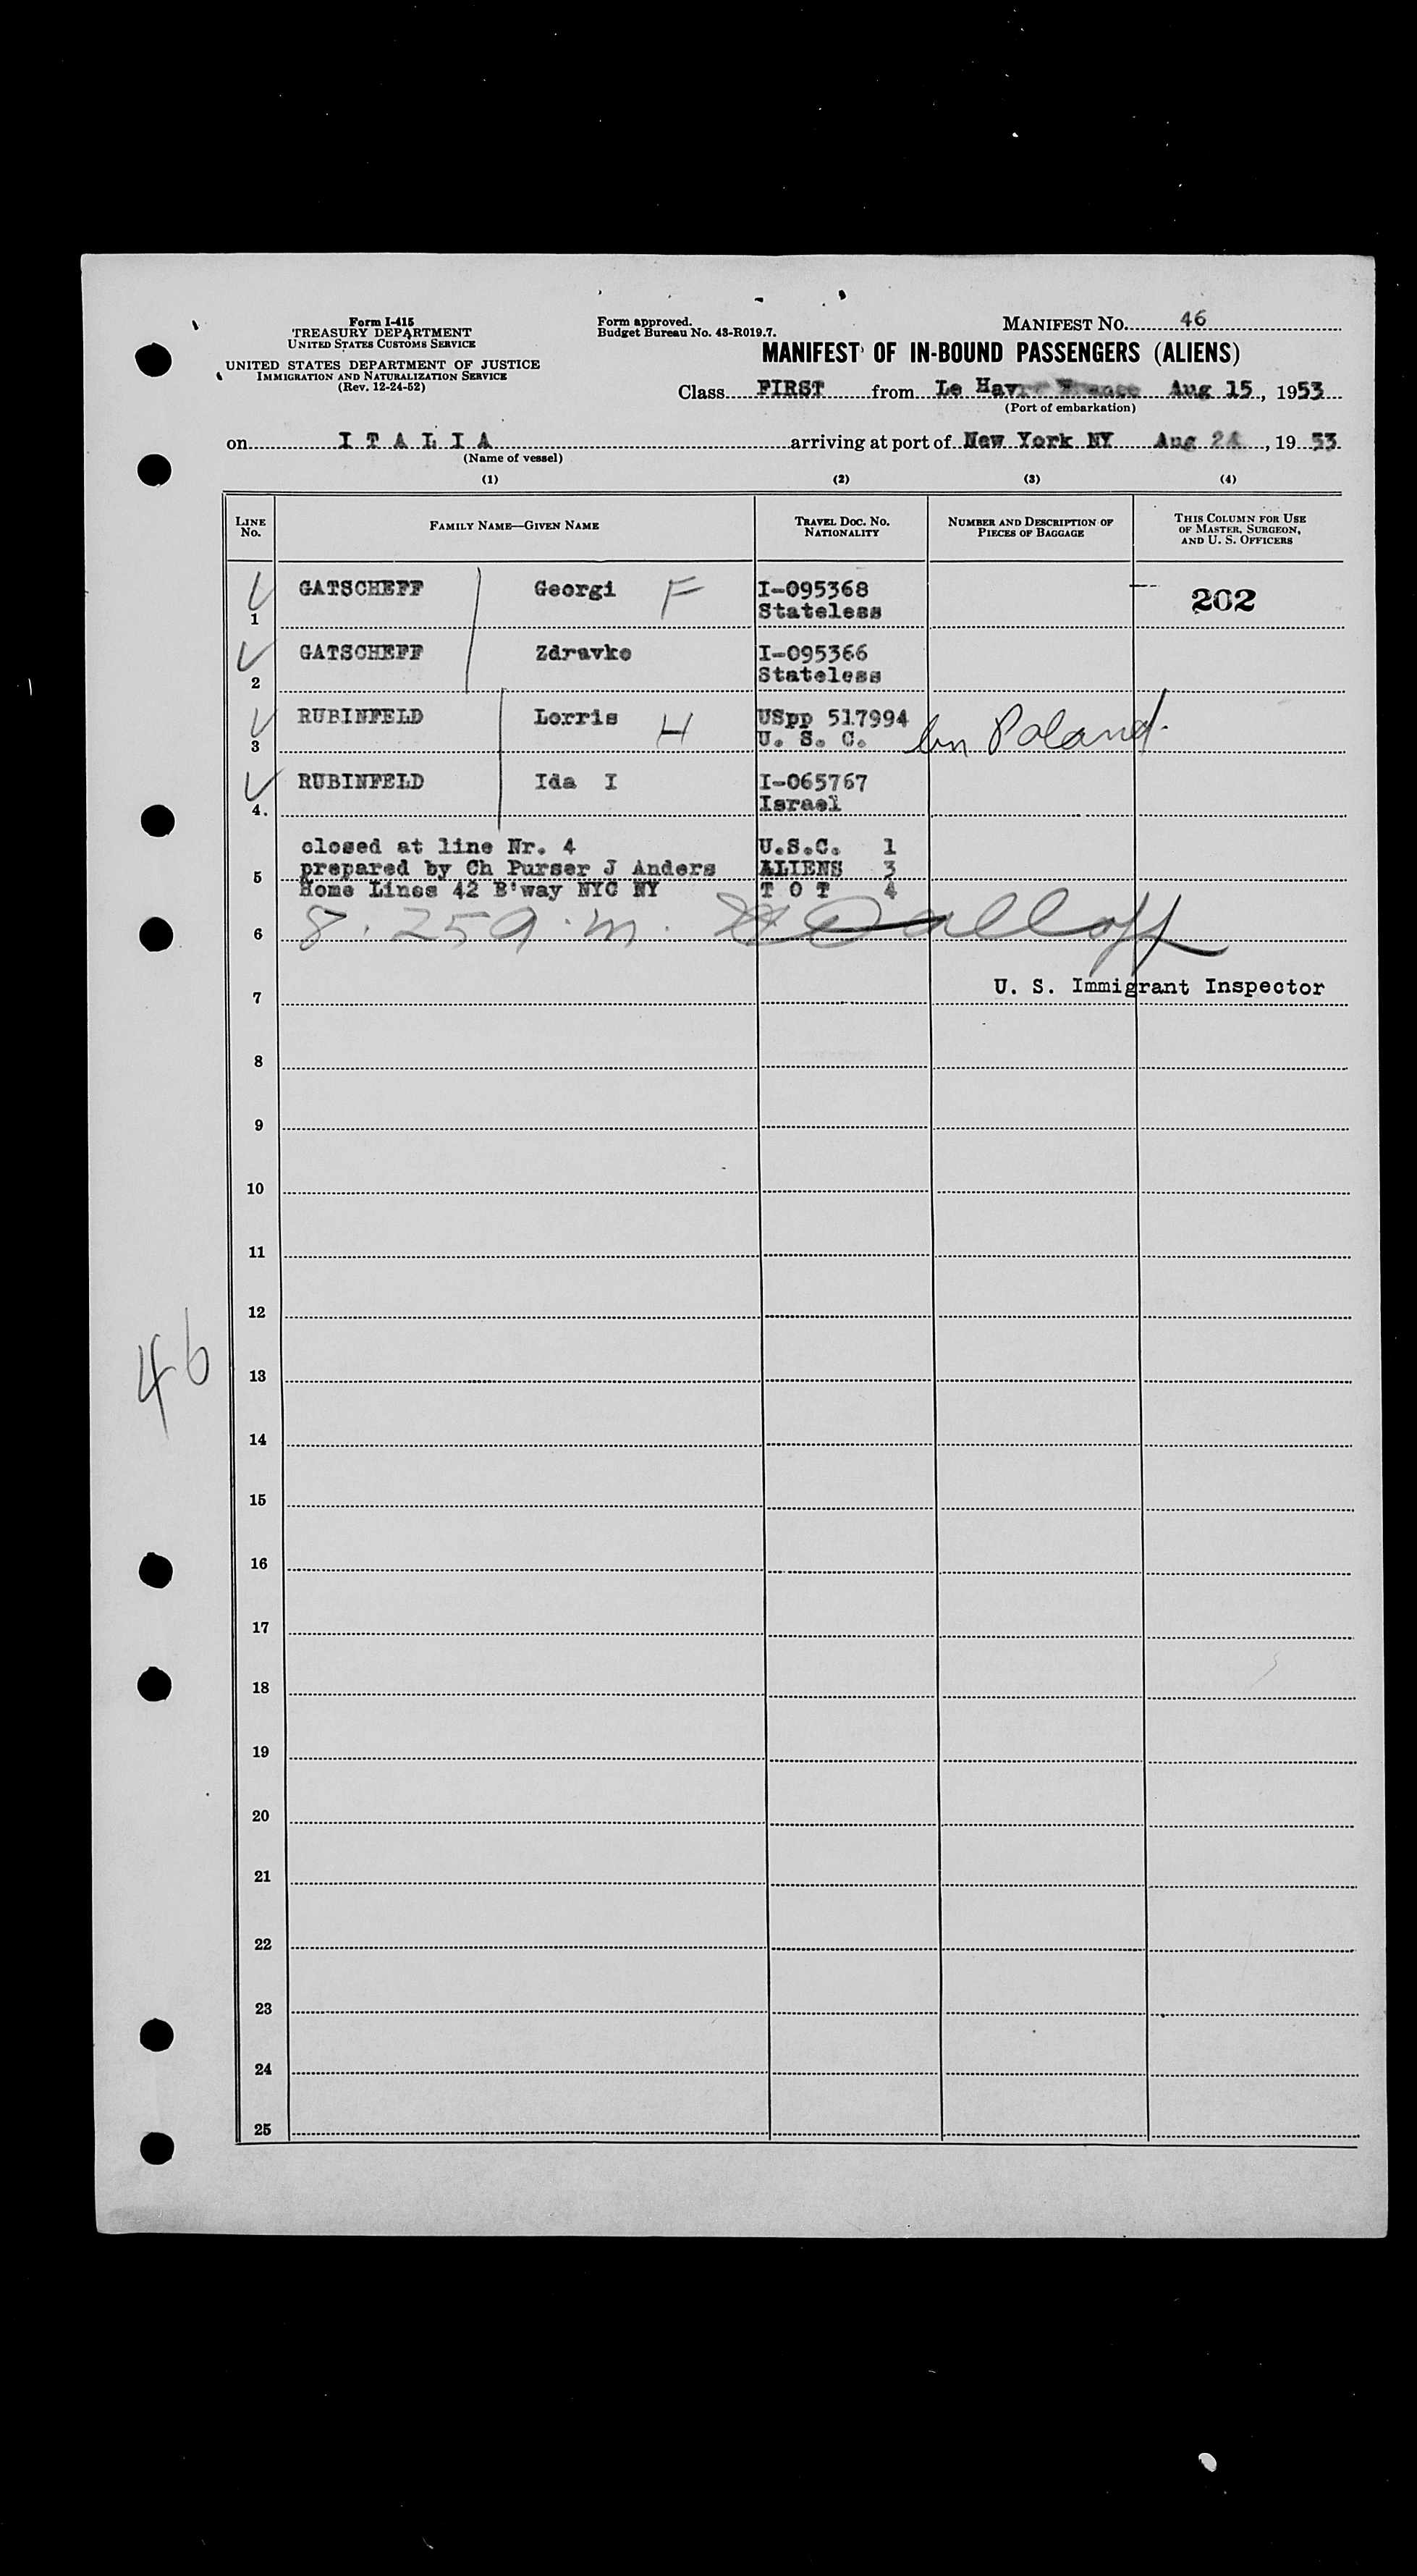 Form I-415
TREASURY DEPARTMENT
UNITED STATES CUSTOMS SERVICE
UNITED STATES DEPARTMENT OF JUSTICE
IMMIGRATION AND NATURALIZATION SERVICE
(Rev. 12-24-52)
Form approved.
Budget Bureau No. 43-R019.7.
MANIFEST NO. 46
MANIFEST OF IN-BOUND PASSENGERS (ALIENS)
Class FIRST from Le Havre France Aug 15, 1953
(Port of embarkation)
on I T A L I A arriving at port of New York NY Aug 24, 19 53
(Name of vessel)
(1) (2) (3) (4)
LINE NO. FAMILY NAME—GIVEN NAME TRAVEL DOC. NO. NATIONALITY NUMBER AND DESCRIPTION OF PIECES OF BAGGAGE THIS COLUMN FOR USE OF MASTER, SURGEON, AND U. S. OFFICERS
1 GATSCHEFF Georgi F I-095368 202
Stateless
2 GATSCHEFF Zdravko I-095366
Stateless
3 RUBINFELD Lorris H USpp 517994
U. S. C. Poland
4. RUBINFELD Ida I I-065767
Israel
closed at line Nr. 4 U.S.C. 1
5 prepared by Ch Purser J Anders ALIENS 3
Home Lines 42 B'way NYC NY T O T 4
6 8.25 a.m.
7 U. S. Immigrant Inspector
8
9
10
11
12
13
46
14
15
16
17
18
19
20
21
22
23
24
25